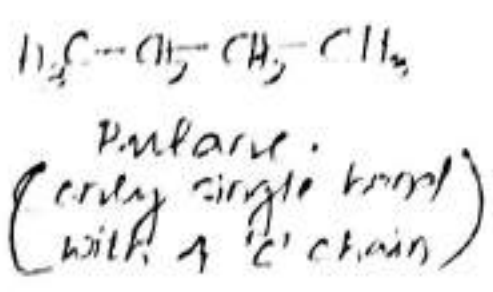 H₃C-CH₂-CH₂-CH₃
Butane.
(only single bond
with 4 'C' chain)